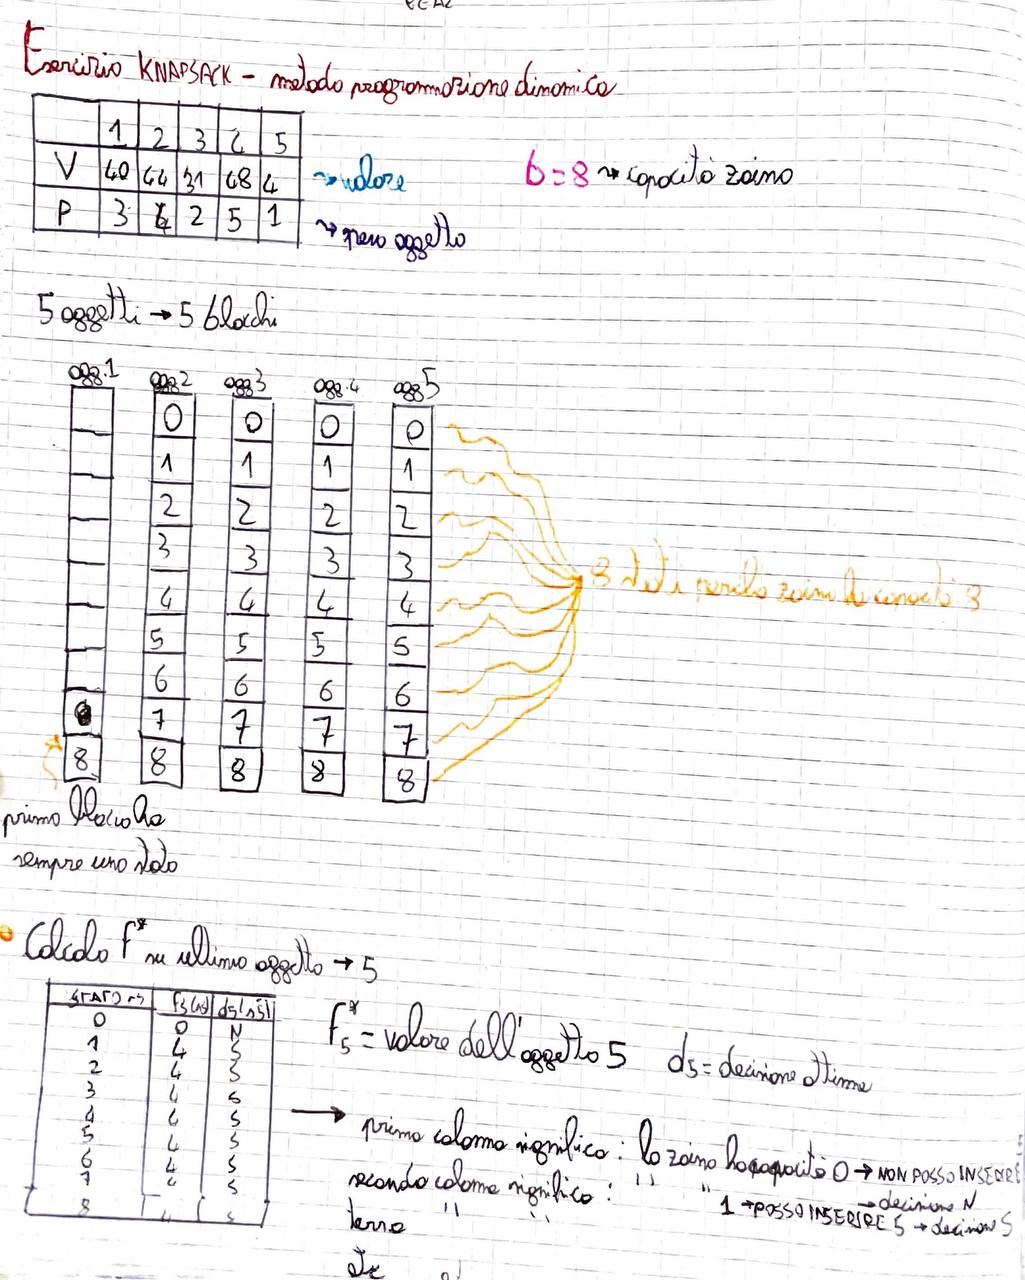 Esercizio KNAPSACK - metodo programmazione dinamica
1 2 3 4 5
V 40 44 31 48 4 ~> valore
P 3 4 2 5 1 ~> peso oggetto
b=8 ~> capacità zaino
5 oggetti → 5 blocchi
ogg.1 ogg2 ogg3 ogg.4 ogg5
0 0 0 0
1 1 1 1
2 2 2 2
3 3 3 3
4 4 4 4
5 5 5 5
6 6 6 6
7 7 7 7
8 8 8 8 8
8 stati perché zaino ha capacità 8
primo blocco ha
sempre uno stato
• Calcolo f* su ultimo oggetto → 5
STATO
0 0 N
1 4 S
2 4 S
3 4 S
4 4 S
5 4 S
6 4 S
7 4 S
8 4 S
f5* = valore dell'oggetto 5 d5 = decisione ottima
→ prima colonna significa: lo zaino ha capacità 0 → NON POSSO INSERIRE
→ decisione N
seconda colonna significa: " " 1 → POSSO INSERIRE 5 → decision S
terza " "